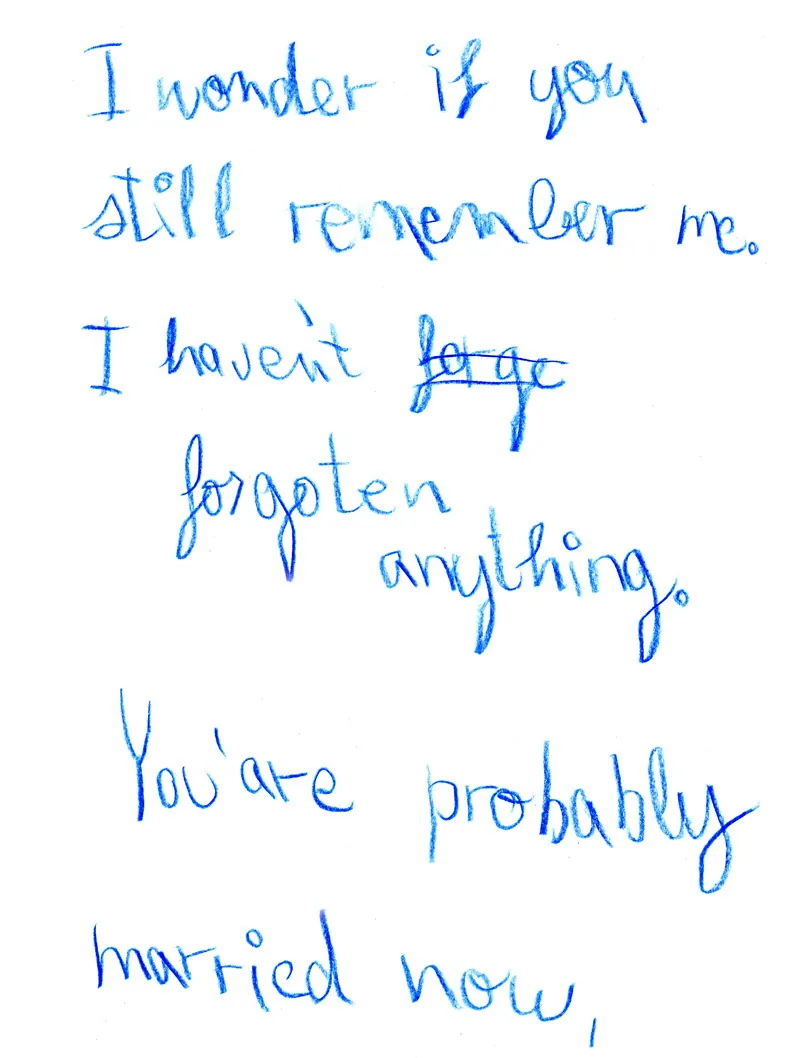 I wonder if you
still remember me.
I haven't forge
forgoten
anything.
You'are probably
married now,